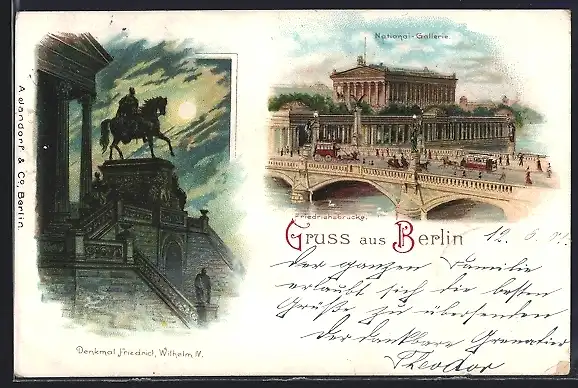 A. Jandorf & Co, Berlin.
National-Gallerie.
Friedrichsbrücke.
Gruss aus Berlin
12. 6.
der ganzen Familie
erlaubt sich die besten
Grüße zu übersenden
der dankbare Grenadier
Theodor
Denkmal Friedrich Wilhelm IV.